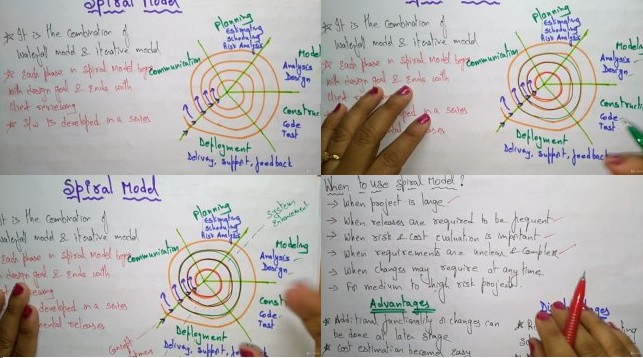 Spiral Model
* It is the combination of
waterfall model & iterative model
* Each phase in Spiral Model begins
with design goal & Ends with
client reviewing
* S/w is developed in a series
Planning
Estimating
Scheduling
Risk Analysis
Communication
Model
Analysis
Design
Construc
Code
Test
Deployment
Delivery, support, feedback
* It is the combination of
waterfall model & iterative model
* Each phase in Spiral Model beg
with design goal & Ends with
Planning
Estimating
Scheduling
Risk Analysis
Communication
Mode
Analysis
Design
Constru
Code
Test
Deployment
Delivery, support, feedback
Spiral Model
It is the combination of
waterfall model & iterative model
Each phase in Spiral Model beg
design goal & Ends with
developed in a series
mental releases
Planning
Estimating
Scheduling
Risk Analysis
System
Communication
Modeling
Analysis
Design
Const
Code
Test
Deployment
Delivery, support
Concept
When to use Spiral Model?
→ When project is large
→ When releases are required to be frequent
→ When risk & cost evaluation is important
→ When requirements are unclear & complex
→ When changes may require at any time
→ For medium to high risk project
Advantages
* Additional functionality or changes can
be done at later stage
* Cost estimation becomes easy